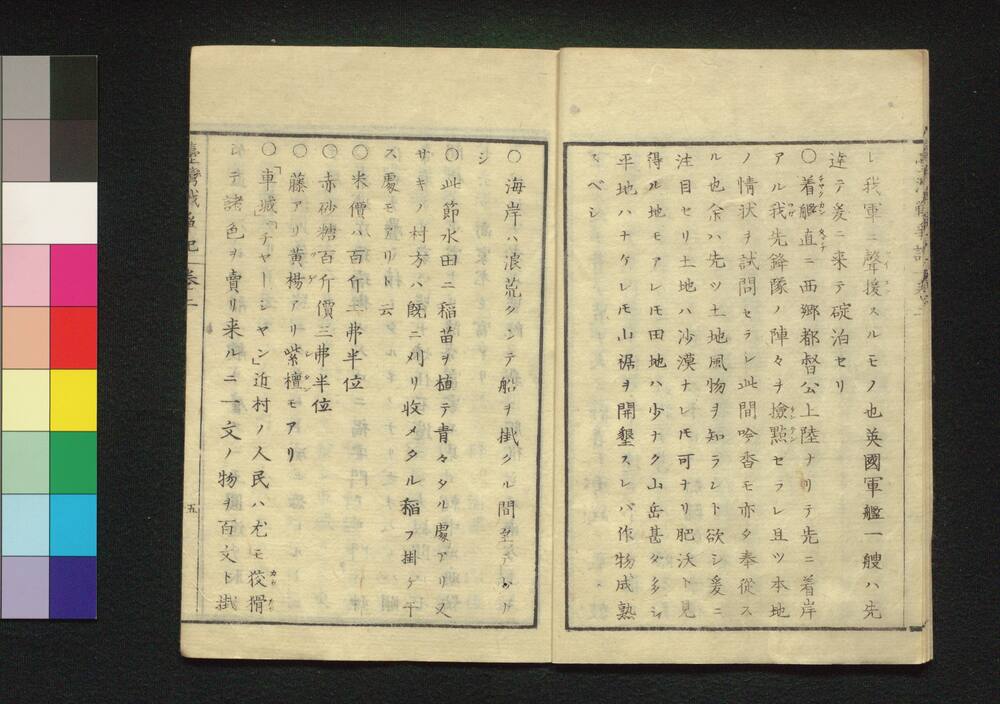 レ我軍ニ聲援スルモノ也英國軍艦一艘ハ先
達テ爰ニ来テ碇泊セリ
〇着艦直ニ西郷都督公上陸ナリテ先ニ着岸
アル我先鋒隊ノ陣々ヲ撿㸃セラレ且ツ本地
ノ情状ヲ試問セラレ此間吟香モ亦タ奉從ス
ル也余ハ先ツ土地風物ヲ知ラント欲シ爰ニ
注目セリ土地ハ沙漠ナレ𪜈可ナリ肥沃ト見
得ル地モアレ𪜈田地ハ少ナク山岳甚ダ多シ
平地ハナケレ𪜈山裾ヲ開墾スレバ作物成熟
スベシ
〇海岸ハ浪荒クシテ船ヲ掛クル間
シ
〇此節水田ニ稲苗ヲ植テ青々タル處アリ又
サキノ村方ハ既ニ刈リ收メタル稲ヲ掛ケ干
ス處モアリト云
〇米價ハ百斤二弗半位
〇赤砂糖百斤價三弗半位
〇藤アリ黄楊アリ紫檀モアリ
〇「車城」「チヤーシヤン」近村ノ人民ハ尤モ狡猾
ニテ諸色ヲ賣リ来ルニ一文ノ物ヲ百文ト掛
五